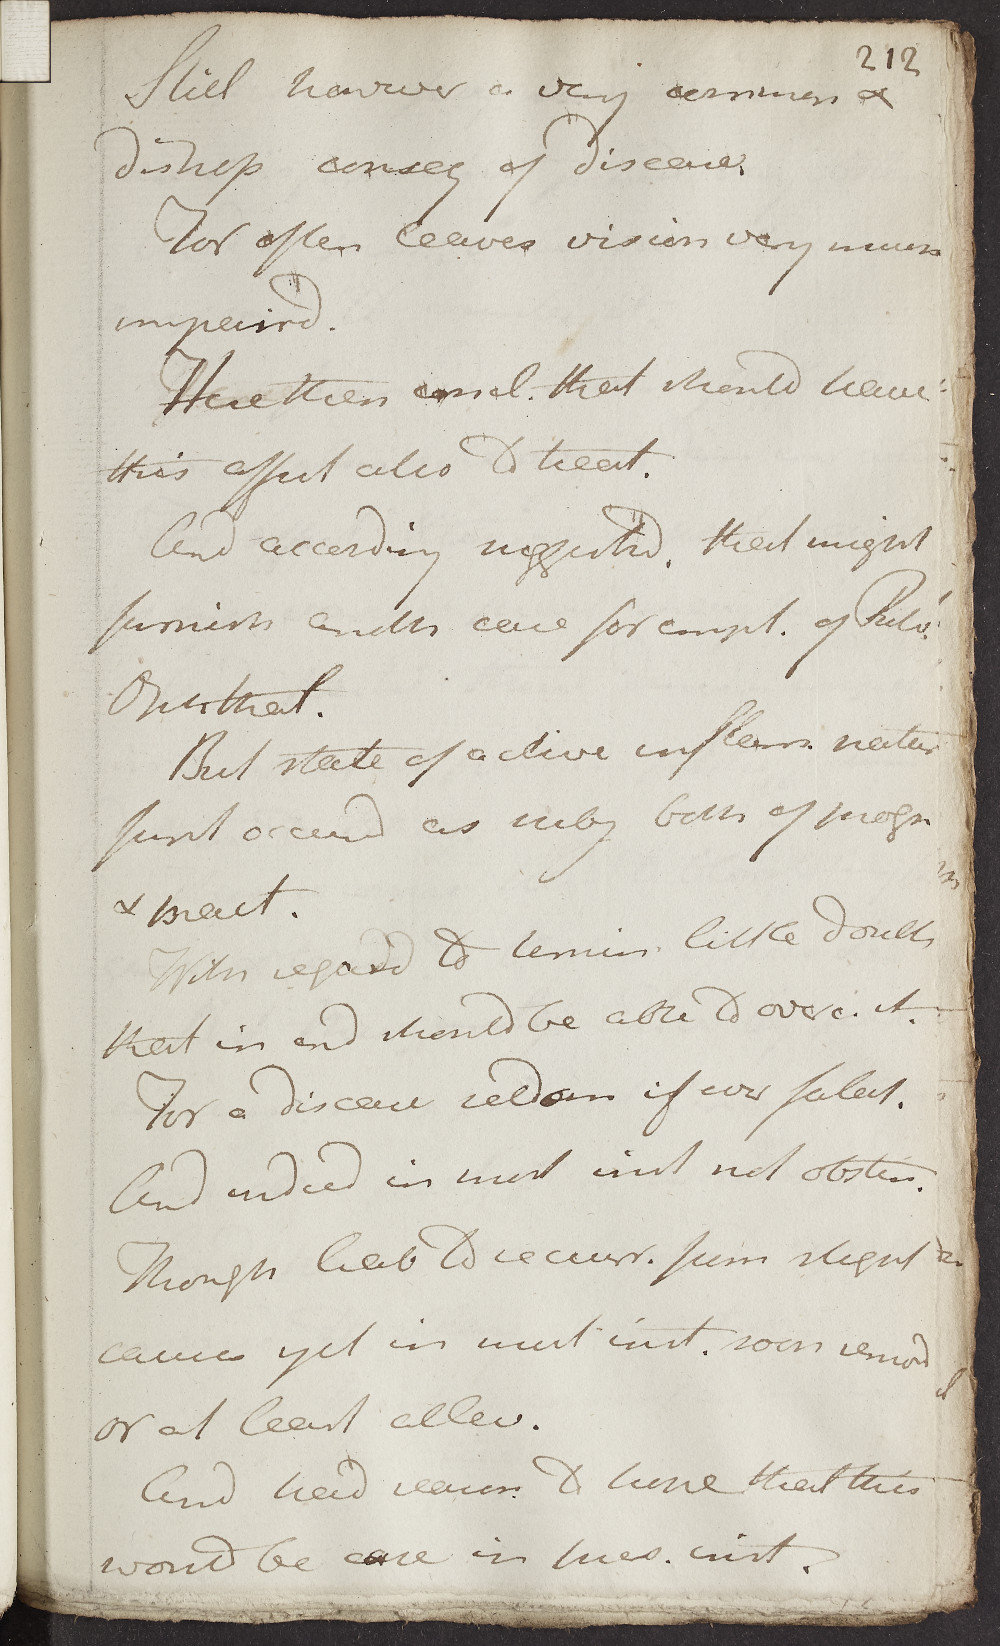 212
Still however a very common &
distresg conseq of disease.
For often leaves vision very much
impaird.
Here then consid. that should have
this affect also to treat.
And according suggested, that might
furnish anoth case for empt. of Puls.
On that.
But state of active inflam. natur
first occurd as subj both of progn
& treat.
With regard to termin. little doubt
that in end should be able to overc. it.
For a disease seldom if ever fatal.
And indeed in most inst not obstin.
Though liab to recurr. from slight
causes yet in most inst. soon removd
or at least allev.
And had reason to hope that this
would be case in pres. inst.